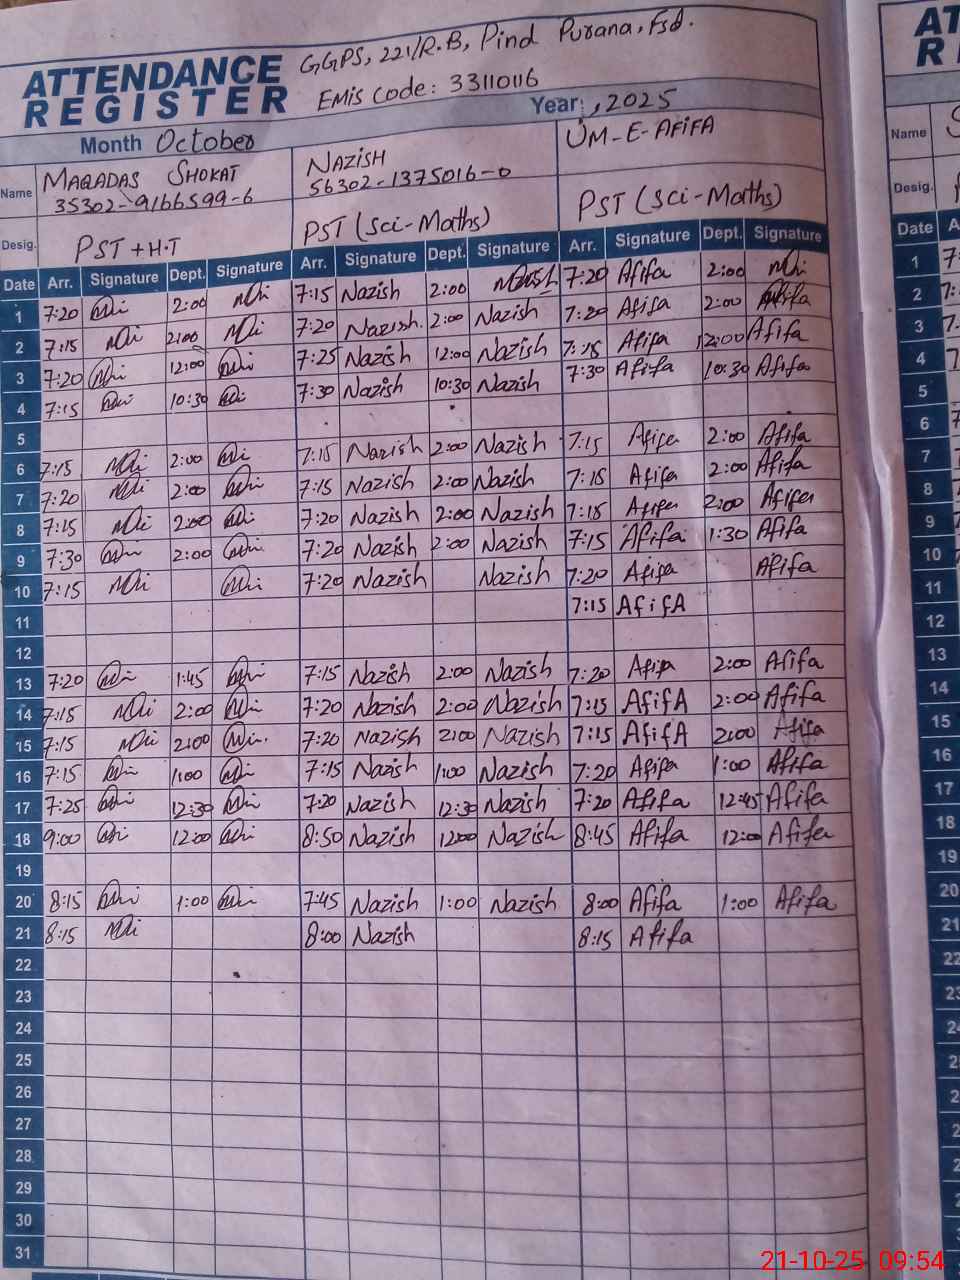 ATTENDANCE REGISTER
GGPS, 221/R.B, Pind Purana, Fsd.
EMIS Code: 3311016
Month October Year: , 2025
Name MAQADAS SHOKAT NAZISH UM-E-AFIFA
35302-9166599-6 56302-1375016-0
Desig. PST + H.T PST (Sci-Maths) PST (Sci-Maths)
Date Arr. Signature Dept. Signature Arr. Signature Dept. Signature Arr. Signature Dept. Signature
1 7:20 2:00 7:15 Nazish 2:00 Nazish 7:20 Afifa 2:00
2 7:15 2:00 7:20 Nazish. 2:00 Nazish 7:20 Afifa 2:00 Afifa
3 7:20 12:00 7:25 Nazish 12:00 Nazish 7:15 Afifa 12:00 Afifa
4 7:15 10:30 7:30 Nazish 10:30 Nazish 7:30 Afifa 10:30 Afifa
5
6 7:15 2:00 7:15 Nazish 2:00 Nazish 7:15 Afifa 2:00 Afifa
7 7:20 2:00 7:15 Nazish 2:00 Nazish 7:15 Afifa 2:00 Afifa
8 7:15 2:00 7:20 Nazish 2:00 Nazish 7:15 Afifa 2:00 Afifa
9 7:30 2:00 7:20 Nazish 2:00 Nazish 7:15 Afifa 1:30 Afifa
10 7:15 7:20 Nazish Nazish 7:20 Afifa Afifa
11 7:15 AfifA
12
13 7:20 1:45 7:15 Nazish 2:00 Nazish 7:20 Afifa 2:00 Afifa
14 7:15 2:00 7:20 Nazish 2:00 Nazish 7:15 AfifA 2:00 Afifa
15 7:15 2:00 7:20 Nazish 2:00 Nazish 7:15 AfifA 2:00 Afifa
16 7:15 1:00 7:15 Nazish 1:00 Nazish 7:20 Afifa 1:00 Afifa
17 7:25 12:30 7:20 Nazish 12:30 Nazish 7:20 Afifa 12:45 Afifa
18 9:00 12:00 8:50 Nazish 12:00 Nazish 8:45 Afifa 12:00 Afifa
19
20 8:15 1:00 7:45 Nazish 1:00 Nazish 8:00 Afifa 1:00 Afifa
21 8:15 8:00 Nazish 8:15 Afifa
22
23
24
25
26
27
28
29
30
31
Name
Desig.
Date
1
2
3
4
5
6
7
8
9
10
11
12
13
14
15
16
17
18
19
20
21
22
23
24
21-10-25 09:54